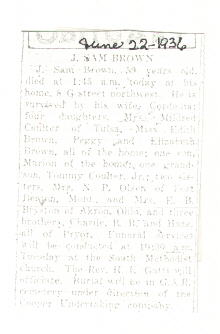 June 22-1936
J. SAM BROWN
J. Sam Brown, 59 years old,
died at 1:45 a.m. today at his
home, 8 G street northwest. He is
survived by his wife, Cordelia;
four daughters, Mrs. Mildred
Coulter of Tulsa, Miss Edith
Brown, Peggy and Elizabeth
Brown, all of the home; one son,
Marion of the home; one grand-
son, Tommy Coulter, Jr.; two sis-
ters, Mrs. N. P. Olsen of Fort
Benton, Mont., and Mrs. E. B.
of Akron, Ohio, and three
brothers, Charlie, R. B. and
all of Pryor. Funeral services
will be conducted at 10:00 a.m.
Tuesday at the South Methodist
church. The Rev. H. E.
officiate. Burial will be in G.A.R.
cemetery under direction of the
Cooper Undertaking company.